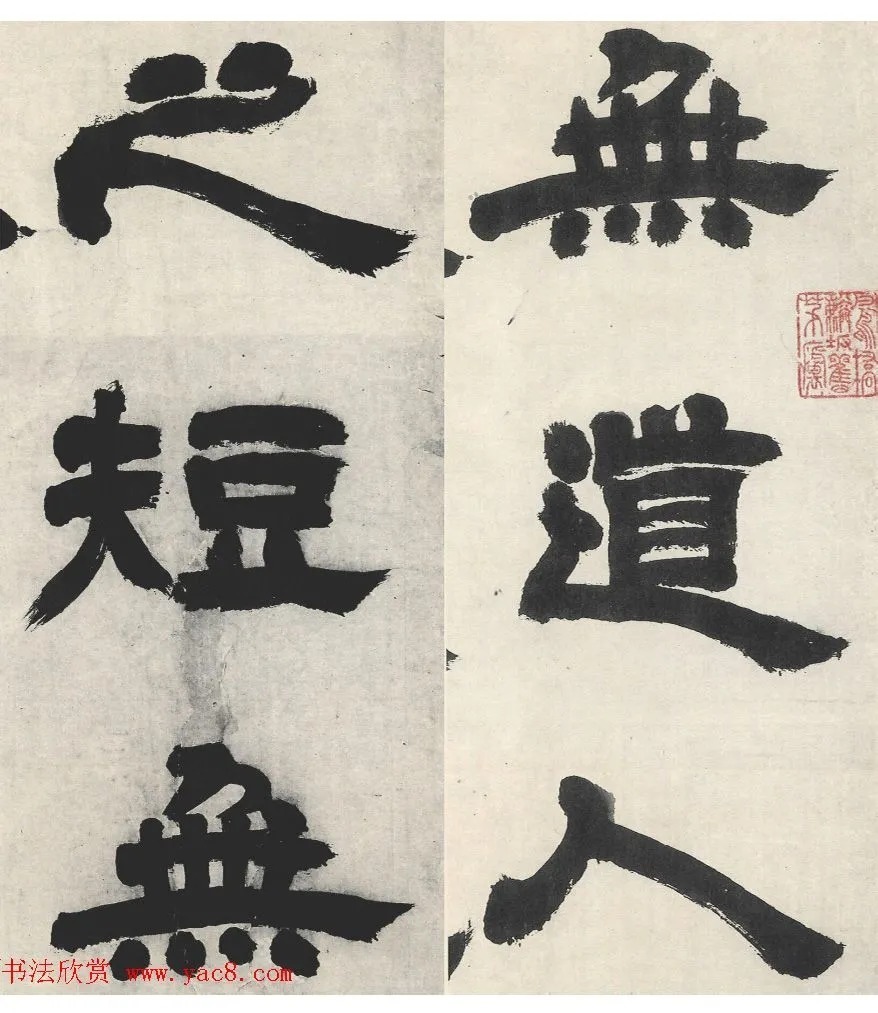 無道人
之短無
书法欣赏 www.yac8.com